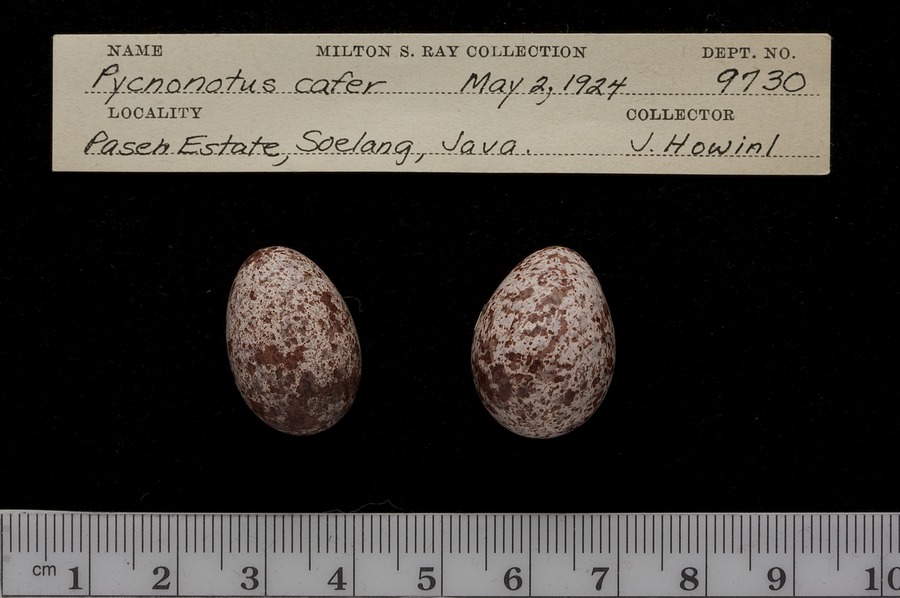 NAME MILTON S. RAY COLLECTION DEPT. NO.
Pycnonotus cafer May 2, 1924 9730
LOCALITY COLLECTOR
Paseh Estate, Soelang, Java. J. Howinl
cm 1 2 3 4 5 6 7 8 9 10